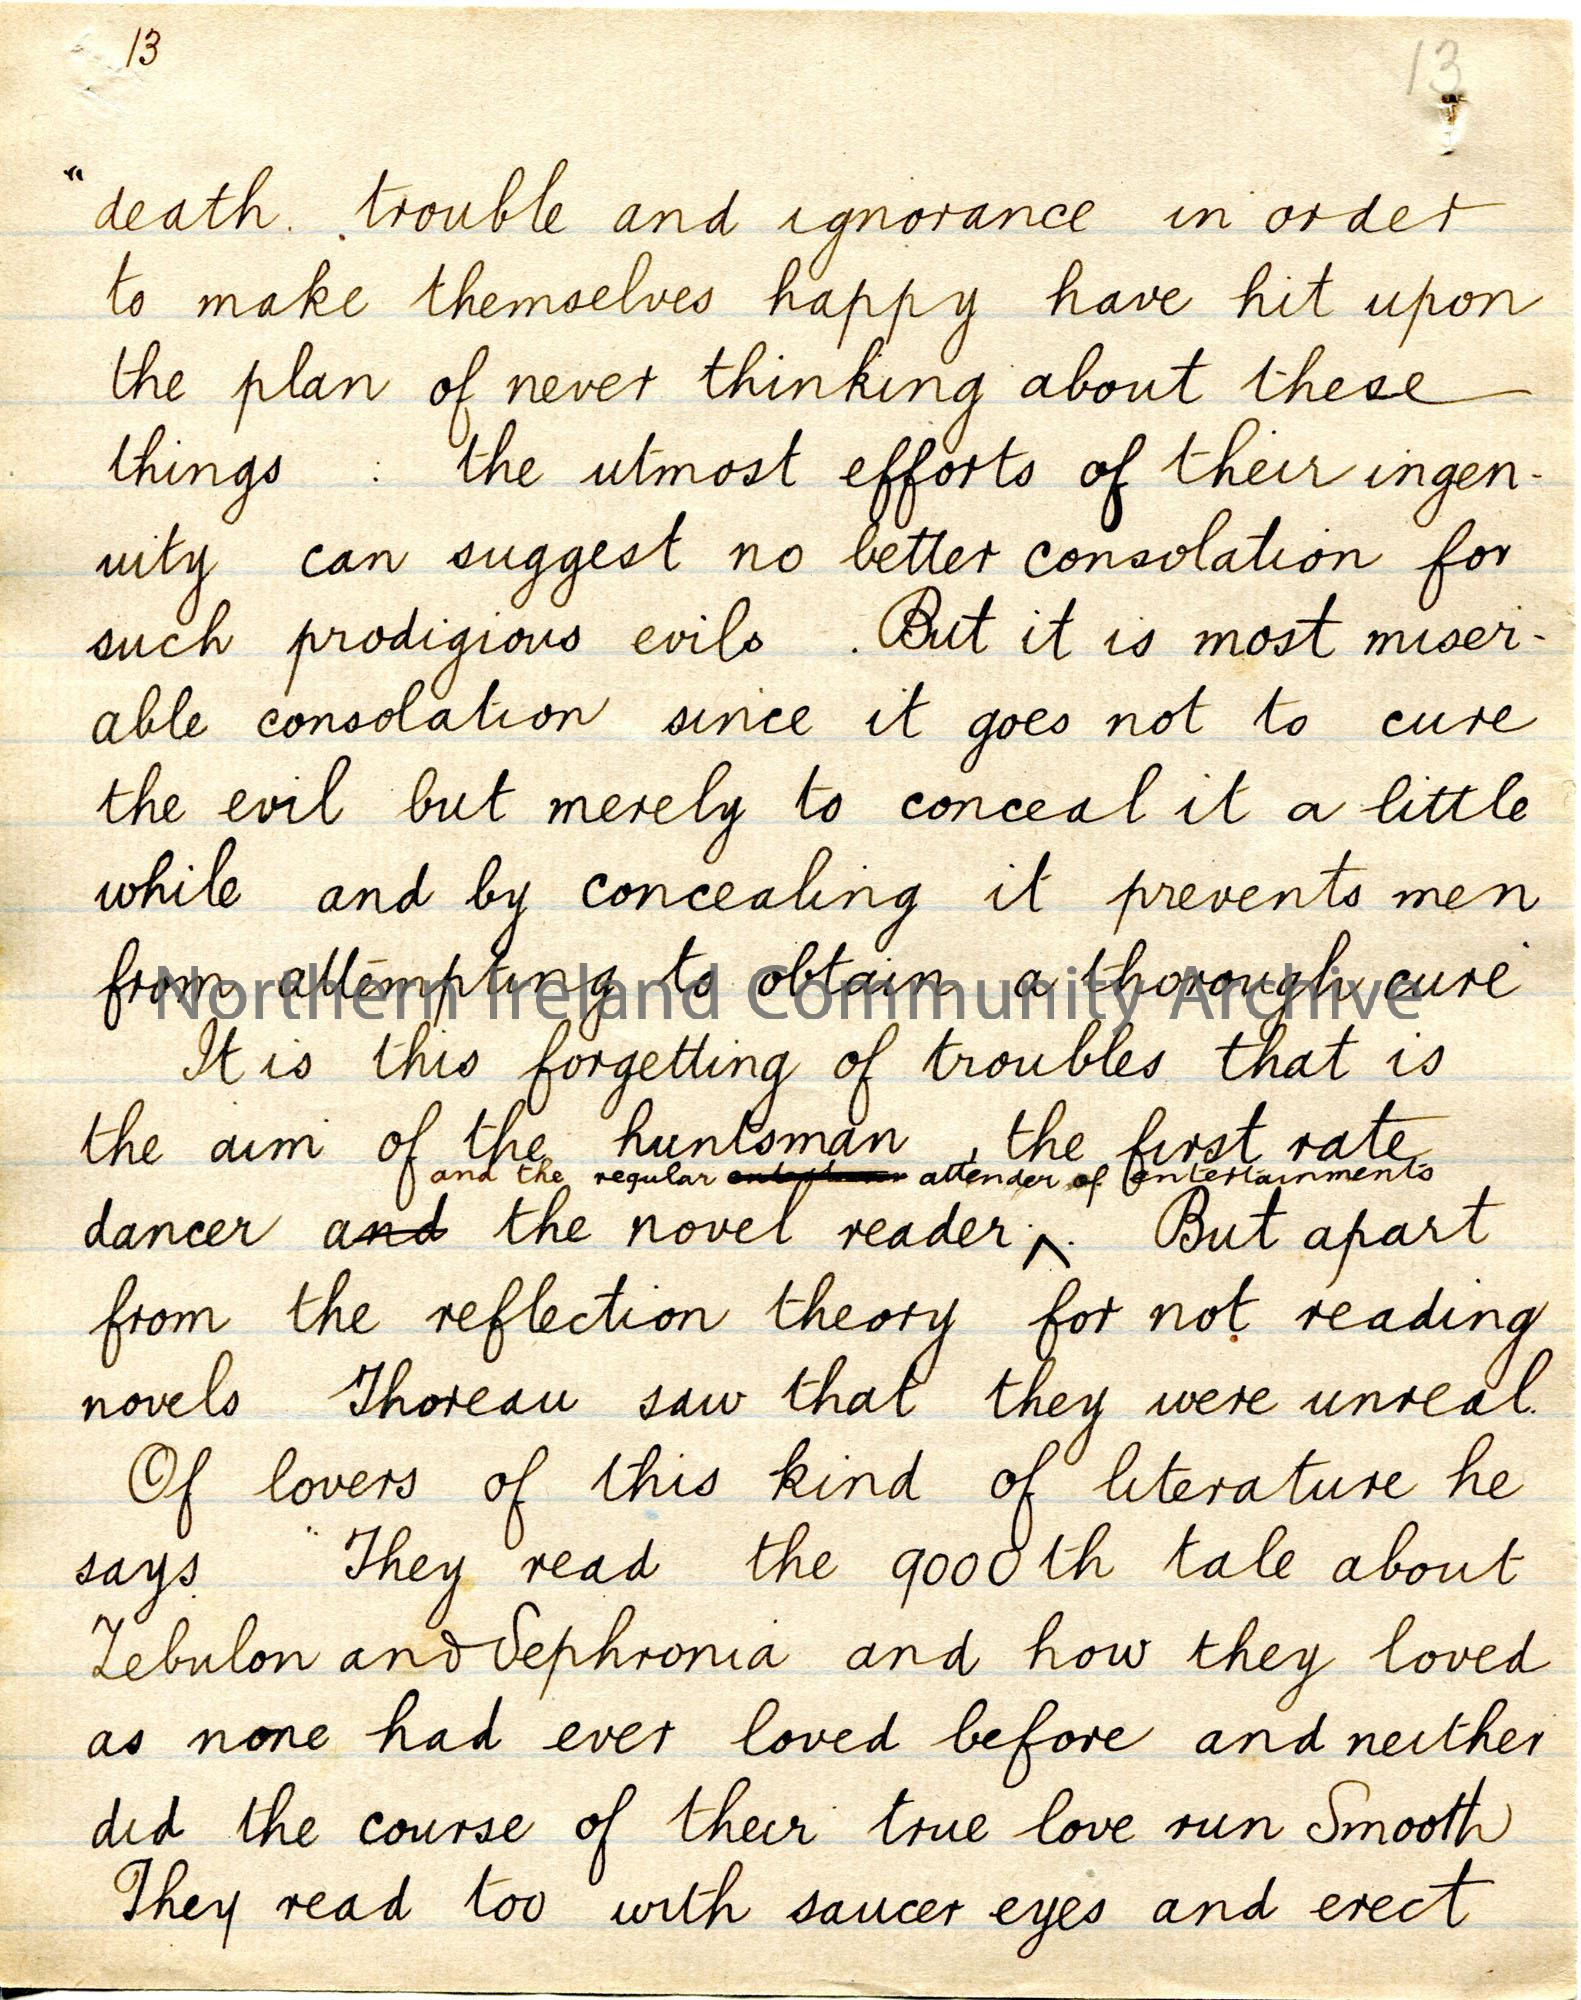 13
13
"death. trouble and ignorance in order
to make themselves happy have hit upon
the plan of never thinking about these
things : the utmost efforts of their ingen-
uity can suggest no better consolation for
such prodigious evils . But it is most miser-
able consolation since it goes not to cure
the evil but merely to conceal it a little
while and by concealing it prevents men
from attempting to obtain a thorough cure
Northern Ireland Community Archive
It is this forgetting of troubles that is
the aim of the huntsman , the first rate
and the regular attender of entertainments
dancer and the novel reader ^. But apart
from the reflection theory for not reading
novels Thoreau saw that they were unreal.
Of lovers of this kind of literature he
says. "They read the 9000th tale about
Zebulon and Sephronia and how they loved
as none had ever loved before and neither
did the course of their true love run Smooth
They read too with saucer eyes and erect